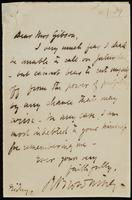 Dear Mrs Gibson,
I very much fear I shall
be unable to call on Saturday
but cannot bear to cut myself
off from the power of profiting
by any chance that may
arise. In any case I am
most indebted to your kindness
for remembering me.
Ever yours very
faithfully,
Friday.